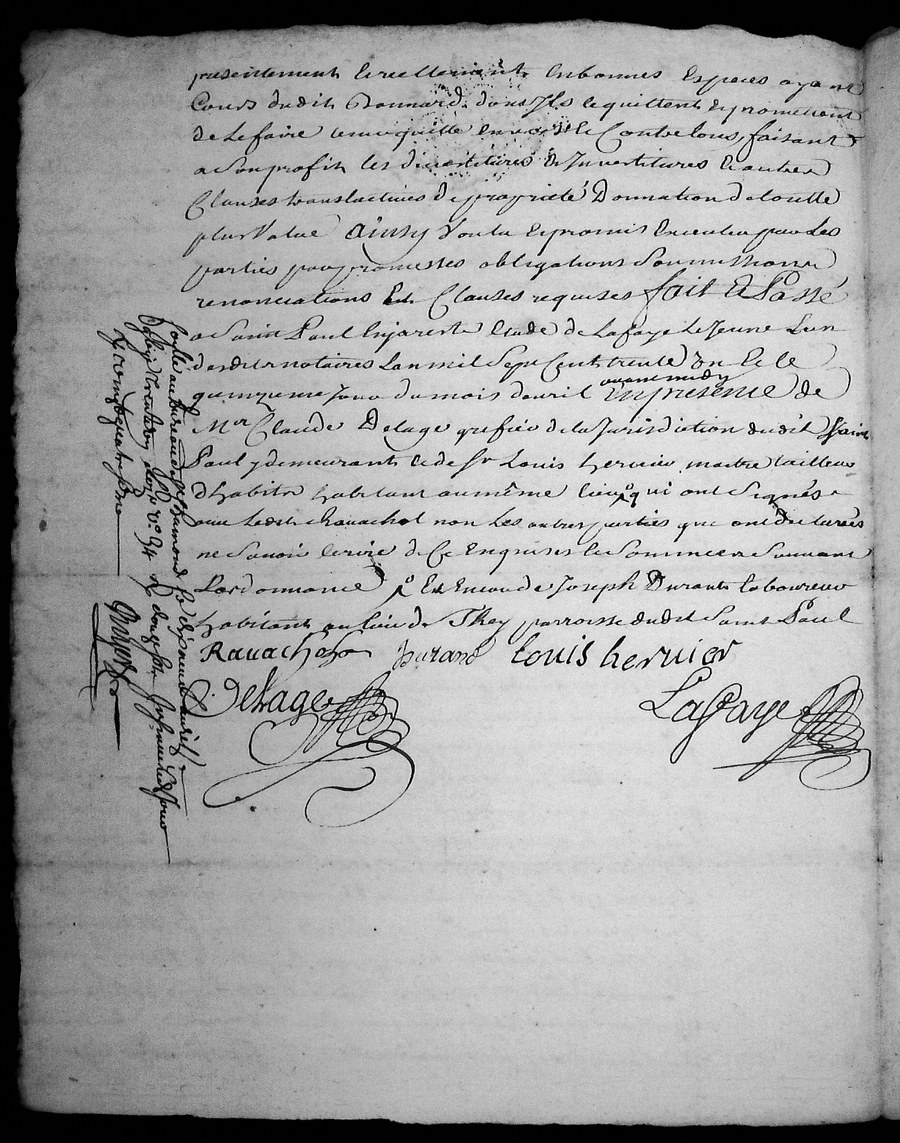 presentement et reellement en bonnes Especes ayant
Cours dudit Bonnard dont Ils le quittent et promettent
de le faire tenir quitte envers et Contre tous, faisant
a Son profit les divestitures et Investitures et autres
Clauses translactives de proprieté Donnation de toutte
plus Value Ainsy Voulu et promis Executer par Les
parties par promesses obligations Soumissions
renonciations Et Clauses requises fait et Passé
a Saint Paul En Jarest Etude de Lafaye Le Jeune L'un
desdits notaires L'an mil Sept Cent trente un et le
quinzieme Jour du mois d'avril avant midy En presence de
Mre Claude Delage greffier de la Jurisdiction dudit Saint
Paul y demeurant et de Sr Louis hervier maitre tailleur
d'habits habitant au même lieu qui ont Signés
avec Ledit Ravachol non Les autres parties que ont declarés
ne Savoir Ecrire de Ce Enquises et Sommees Suivant
L'ordonnance Et Encor de Joseph Durant laboureur
habitant au lieu de Parroisse dudit Saint Paul
Ravachol Durand Louis hervier
Delage Lafaye
au Bureau de St Chamond Le avril